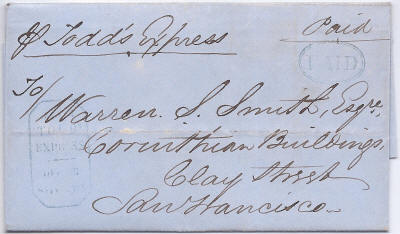 ℘ Todd's Express
Paid
PAID
To/
Warren. S. Smith, Esqre,
Corinthian Buildings,
Clay Street
San Francisco.
TODD'S
EXPRESS